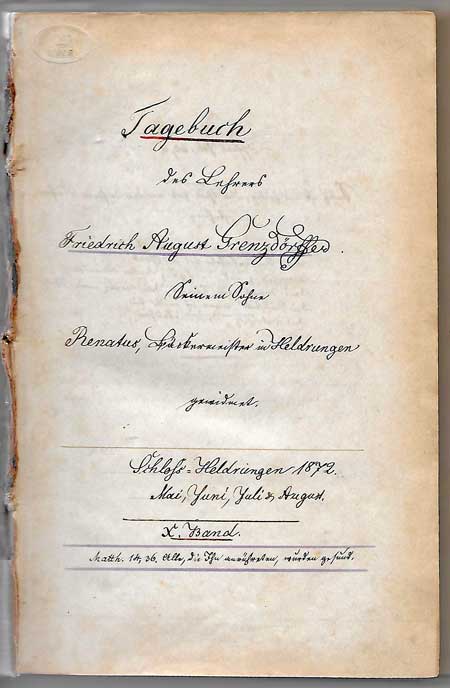 Tagebuch
des Lehrers
Friedrich August Grenzdörffer.
Seinem Sohne
Renatus, Bäckermeister in Heldrungen
gewidmet.
Schloss=Heldrungen 1872.
Mai, Juni, Juli & August.
X. Band.
Matth. 14, 36. Alle, die Ihn anrühreten, wurden gesund.